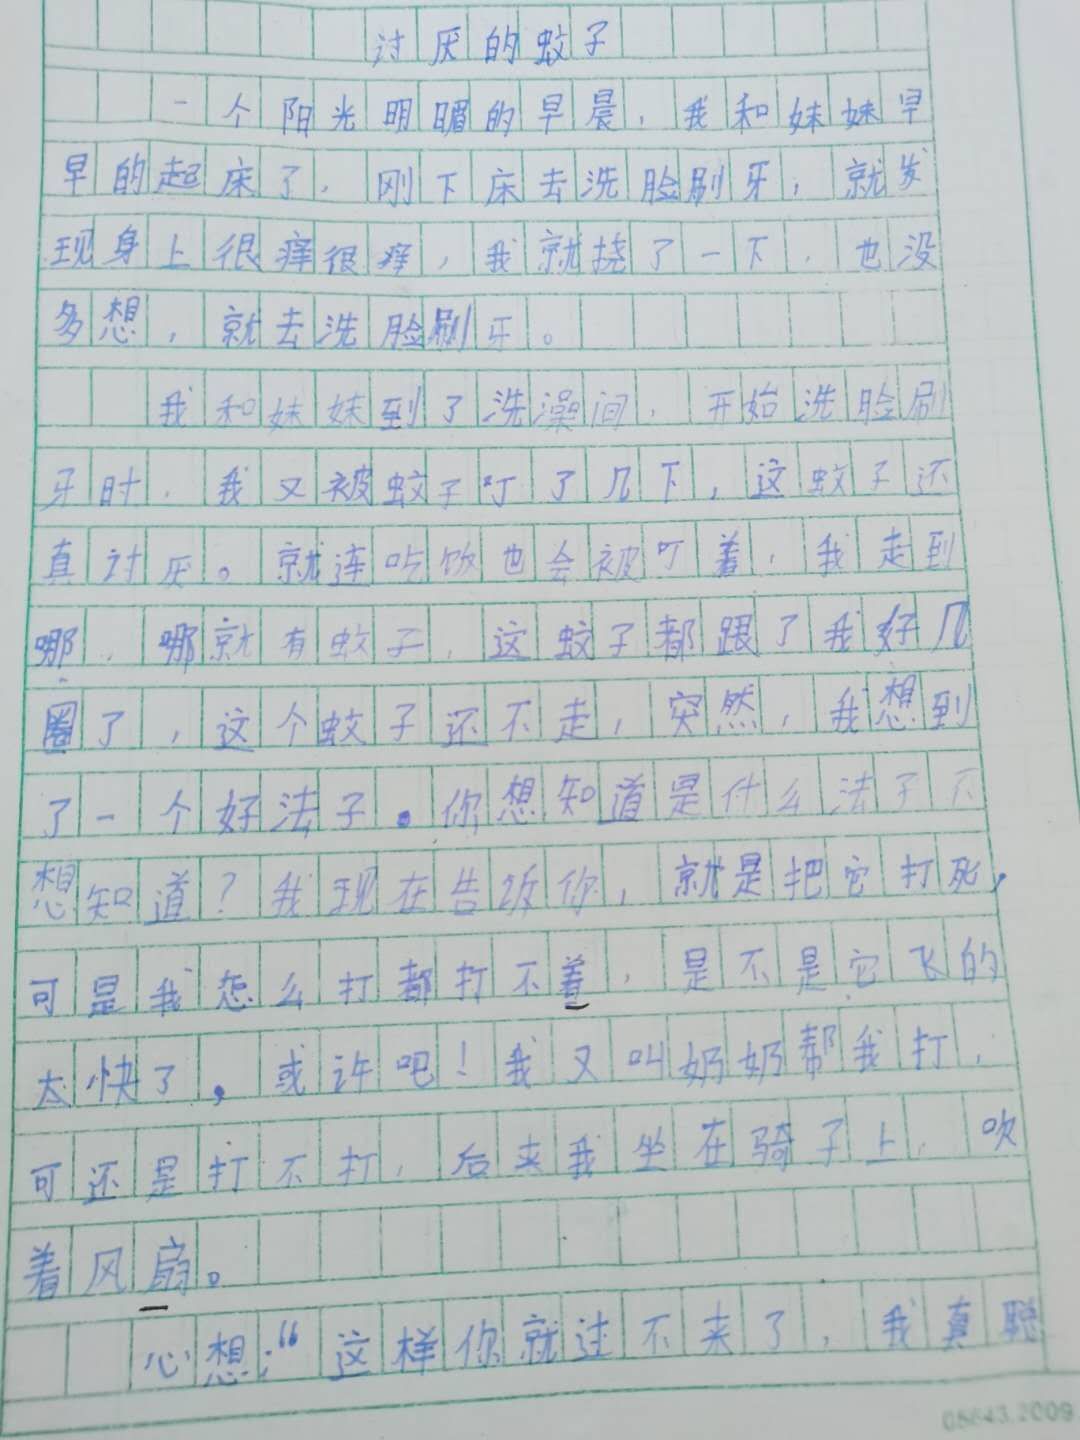 讨厌的蚊子
一个阳光明媚的早晨，我和妹妹早
早的起床了，刚下床去洗脸刷牙，就发
现身上很痒很痒，我就挠了一下，也没
多想，就去洗脸刷牙。
我和妹妹到了洗澡间，开始洗脸刷
牙时，我又被蚊子叮了几下，这蚊子还
真讨厌。就连吃饭也会被叮着，我走到
哪，哪就有蚊子，这蚊子都跟了我好几
圈了，这个蚊子还不走，突然，我想到
了一个好法子。你想知道是什么法子不
想知道？我现在告诉你，就是把它打死，
可是我怎么打都打不着，是不是它飞的
太快了，或许吧！我又叫奶奶帮我打，
可还是打不打，后来我坐在骑子上，吹
着风扇。
心想：“这样你就过不来了，我真聪
05643.2009